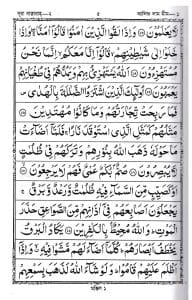 সূরা বাক্বারাহ্–২ ৫ আলিফ লাম মীম–১
لَّا يَعْلَمُوْنَ ۝ وَاِذَا لَقُوا الَّذِيْنَ اٰمَنُوْا قَالُوْٓا اٰمَنَّا ۚ وَاِذَا
خَلَوْا اِلٰى شَيٰطِيْنِهِمْ ۙ قَالُوْٓا اِنَّا مَعَكُمْ ۙ اِنَّمَا نَحْنُ
مُسْتَهْزِءُوْنَ ۝ اَللّٰهُ يَسْتَهْزِئُ بِهِمْ وَيَمُدُّهُمْ فِيْ طُغْيَانِهِمْ
يَعْمَهُوْنَ ۝ اُولٰٓئِكَ الَّذِيْنَ اشْتَرَوُا الضَّلٰلَةَ بِالْهُدٰى
فَمَا رَبِحَتْ تِّجَارَتُهُمْ وَمَا كَانُوْا مُهْتَدِيْنَ ۝
مَثَلُهُمْ كَمَثَلِ الَّذِى اسْتَوْقَدَ نَارًا ۚ فَلَمَّآ اَضَآءَتْ
مَا حَوْلَهٗ ذَهَبَ اللّٰهُ بِنُوْرِهِمْ وَتَرَكَهُمْ فِيْ ظُلُمٰتٍ
لَّا يُبْصِرُوْنَ ۝ صُمٌّۢ بُكْمٌ عُمْيٌ فَهُمْ لَا يَرْجِعُوْنَ ۝
اَوْ كَصَيِّبٍ مِّنَ السَّمَآءِ فِيْهِ ظُلُمٰتٌ وَّرَعْدٌ وَّبَرْقٌ ۚ
يَجْعَلُوْنَ اَصَابِعَهُمْ فِيْٓ اٰذَانِهِمْ مِّنَ الصَّوَاعِقِ حَذَرَ
الْمَوْتِ ۗ وَاللّٰهُ مُحِيْطٌۢ بِالْكٰفِرِيْنَ ۝ يَكَادُ الْبَرْقُ
يَخْطَفُ اَبْصَارَهُمْ ۗ كُلَّمَآ اَضَآءَ لَهُمْ مَّشَوْا فِيْهِ ۙ وَاِذَآ
اَظْلَمَ عَلَيْهِمْ قَامُوْا ۗ وَلَوْ شَآءَ اللّٰهُ لَذَهَبَ بِسَمْعِهِمْ
মঞ্জিল ১